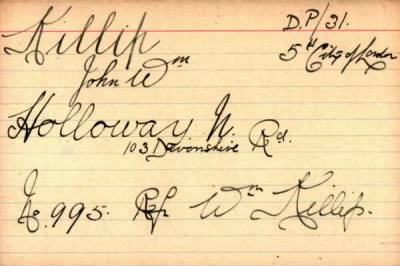 Killip D.P/31.
John Wm 5th City of London
Holloway. N.
103 Devonshire Rd.
No. 995. Ref. Wm Killip.